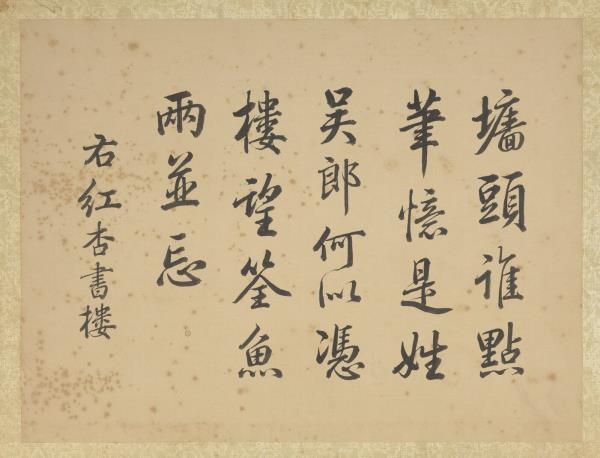 墻頭誰點
筆憶是姓
吴郎何似憑
樓望筌魚
兩並忘
右紅杏書樓